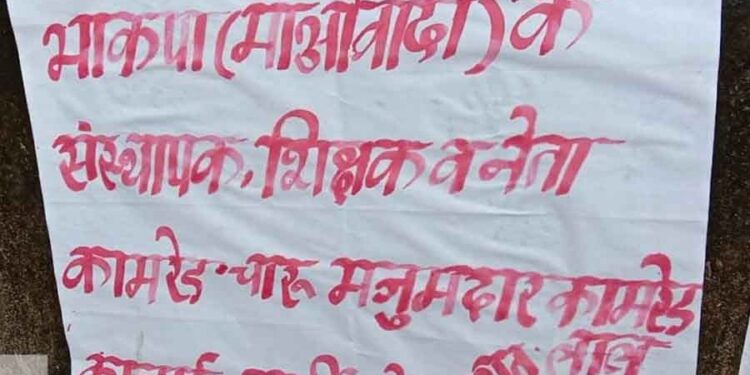 भाकपा (माओवादी) के
संस्थापक, शिक्षक व नेता
कामरेड चारू मजुमदार कामरेड
लाल